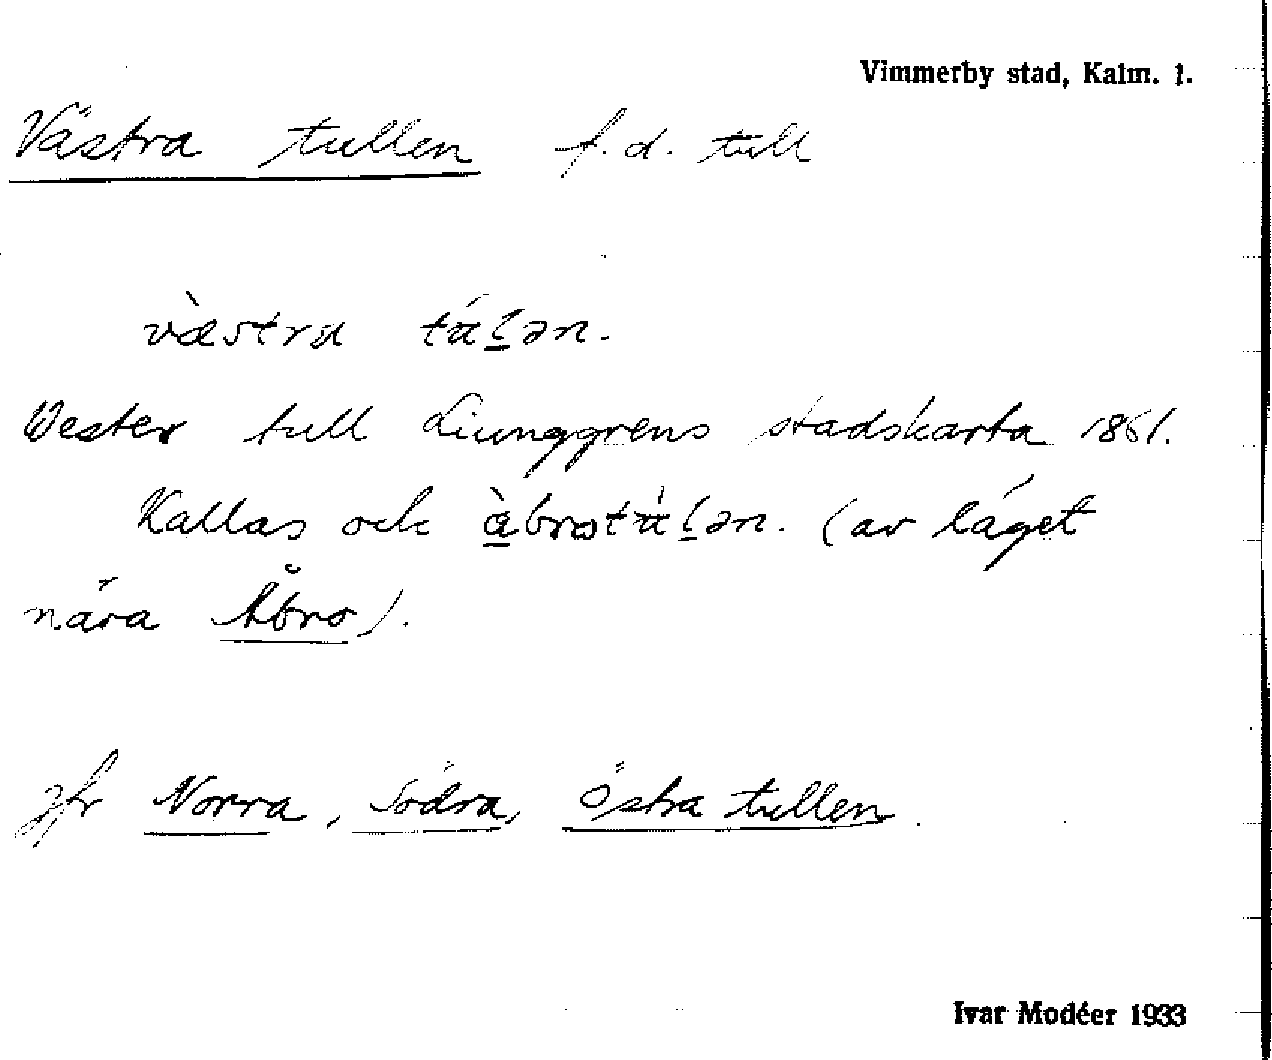 Vimmerby stad, Kalm. l.
Västra tullen f.d. till
västra
Vester tull Liunggrens stadskarta 1861.
Kallas och (av läget
nära Åbro).
Jfr Norra, Södra, Östra tullen.
Ivar Modéer 1933